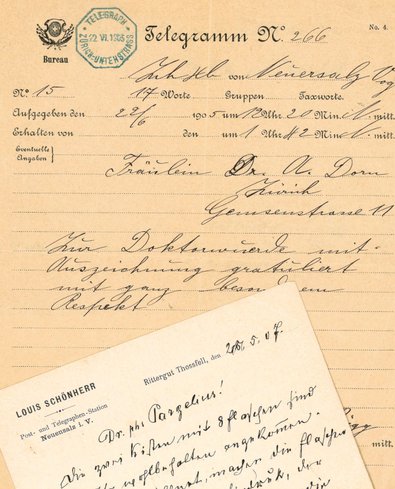 Telegramm Nº 266
No. 4.
TELEGRAPH
22. VI. 1905
ZÜRICH-UNTERSTRASS
Bureau
von Neuensalz Vog
Nº 15 17 Worte. Gruppen. Taxworte.
Aufgegeben den 22/6 1905 um 12 Uhr 20 Min N. mitt.
Erhalten von den um 1 Uhr 42 Min N. mitt.
Eventuelle
Angaben
Fräulein Dr. A. Dorn
Zürich
Gemsenstrasse 11
Zur Doktorwuerde mit
Auszeichnung gratuliert
mit ganz
Respekt
mitt.
LOUIS SCHÖNHERR
Post- und Telegraphen-Station
Neuensalz i. V.
Rittergut Thossfell, den 5. 07.
Dr. phil
Die zwei Kisten mit 8 flaschen sind
wohlbehalten angekommen.
die flaschen
der